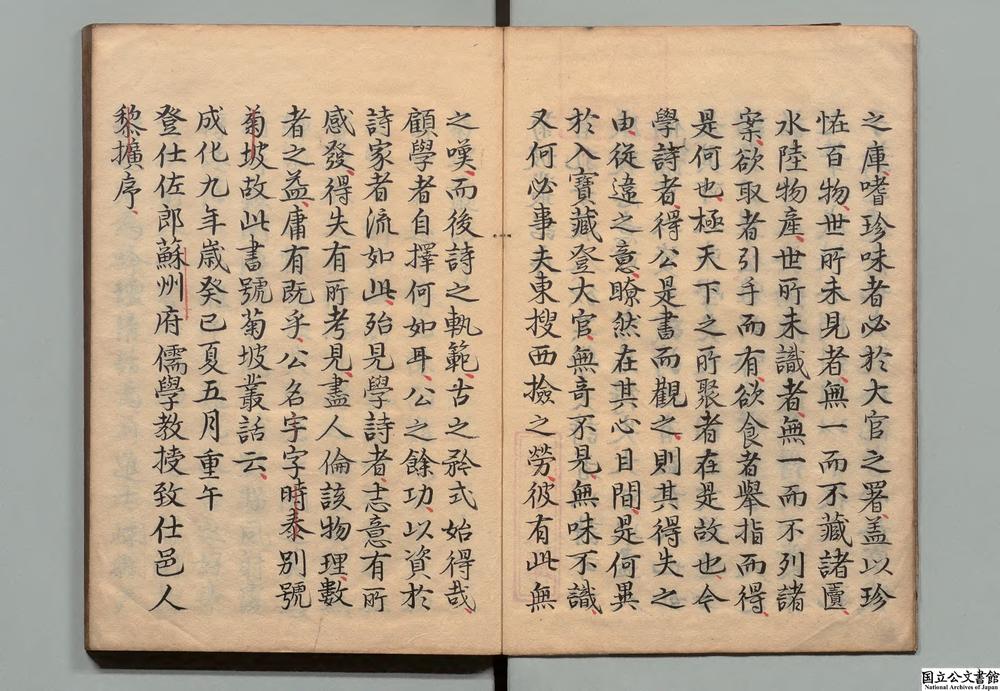 之庫嗜珍味者必於大官之署盖以珍
恠百物世所未見者無一而不藏諸匱
水陸物產世所未識者無一而不列諸
案欲取者引手而有欲食者舉指而得
是何也極天下之所聚者在是故也今
學詩者得公是書而觀之則其得失之
由從違之意瞭然在其心目間是何異
於入寶藏登大官無奇不見無味不識
又何必事夫東搜西撿之勞彼有此無
之嘆而後詩之軌範古之矜式始得哉
顧學者自擇何如耳公之餘功以資於
詩家者流如此殆見學詩者志意有所
感發得失有所考見盡人倫該物理數
者之益庸有既乎公名宇字時泰別號
菊坡故此書號菊坡叢話云
成化九年歲癸巳夏五月重午
登仕佐郎蘇州府儒學教授致仕邑人
黎擴序
国立公文書館
National Archives of Japan